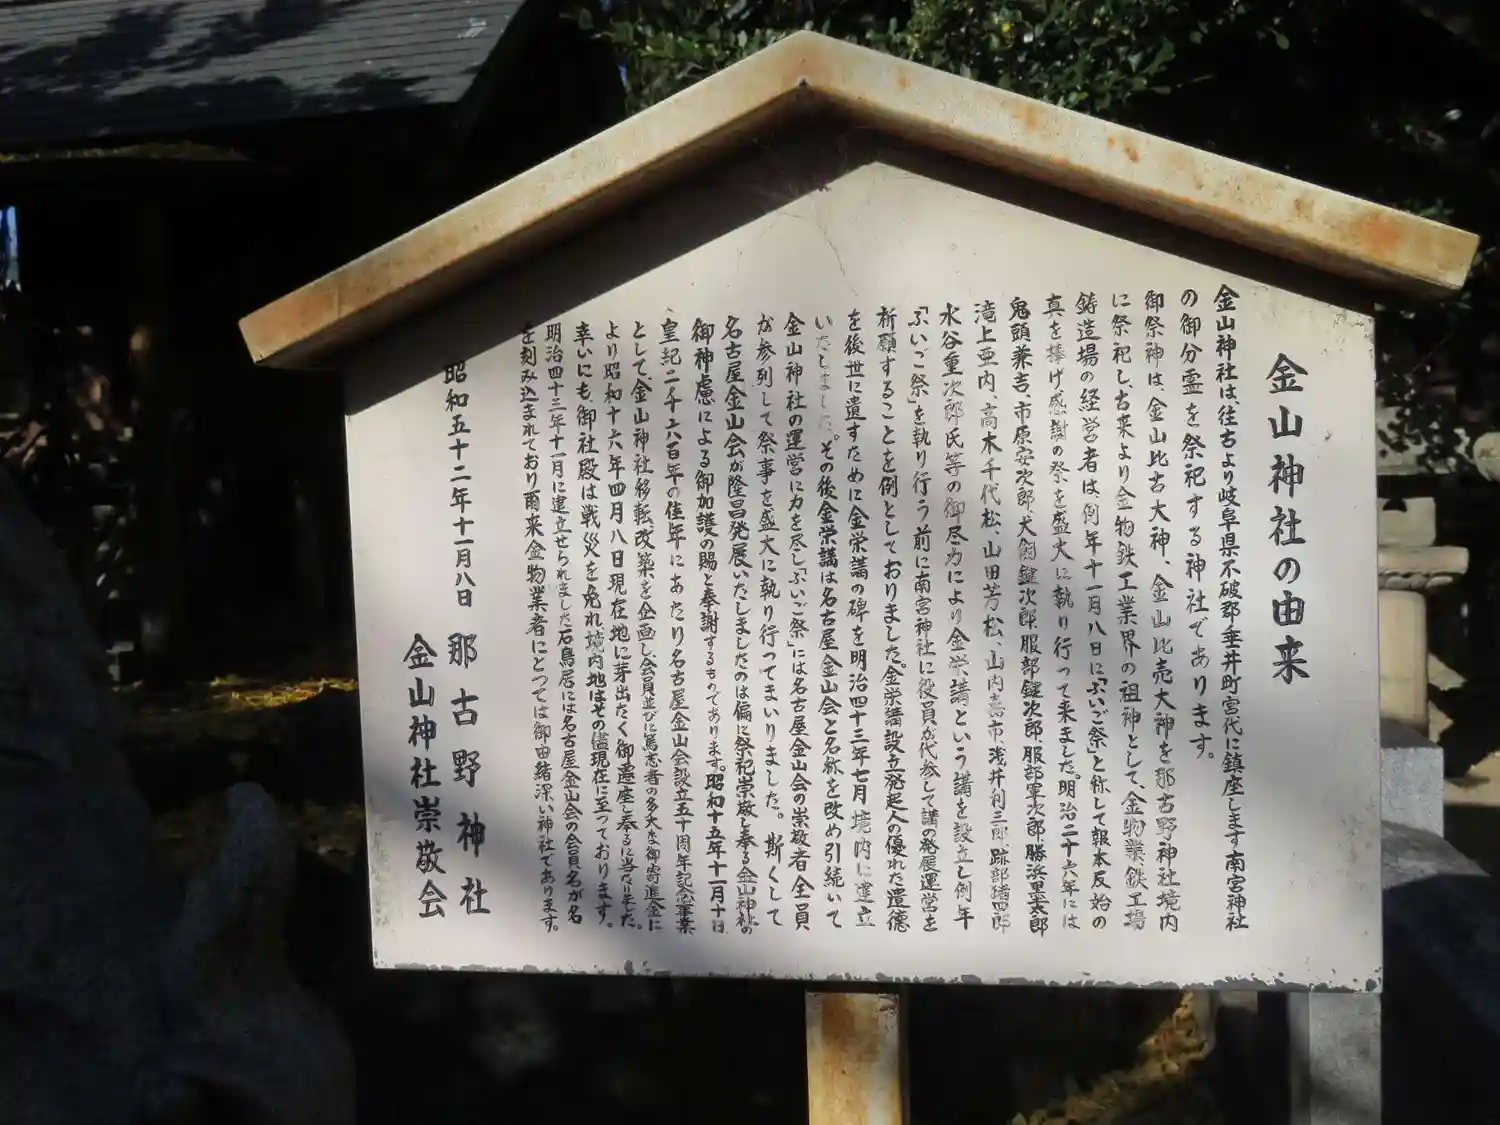 金山神社の由来
金山神社は、往古より岐阜県不破郡垂井町宮代に鎮座します南宮神社
の御分霊を祭祀する神社であります。
御祭神は、金山比古大神、金山比売大神を那古野神社境内
に祭祀し、古来より金物鉄工業界の祖神として、金物業、鉄工場
鋳造場の経営者は、例年十一月八日に「ふいご祭」と称して報本反始の
真を捧げ感謝の祭を盛大に執り行って来ました。明治二十六年には
鬼頭兼吉、市原安次郎、犬飼鍵次郎、服部鍵次郎、服部軍次郎、勝浜黒太郎
滝上亜内、高木千代松、山田芳松、山内嘉市、浅井利三郎、跡部猪四郎
水谷重次郎氏等の御尽力により金栄講という講を設立し例年
「ふいご祭」を執り行う前に南宮神社に役員が代参して講の発展運営を
祈願することを例としておりました。金栄講設立発起人の優れた遺徳
を後世に遺すために金栄講の碑を明治四十三年七月境内に建立
いたしました。その後金栄講は名古屋金山会と名称を改め引続いて
金山神社の運営に力を尽しふいご祭」には名古屋金山会の崇敬者全員
が参列して祭事を盛大に執り行ってまいりました。斯くして
名古屋金山会が隆昌発展いたしましたのは偏に祭祀崇敬し奉る金山神社の
御神慮による御加護の賜と奉謝するものであります。昭和十五年十一月十日
皇紀二千六百年の佳年にあたり名古屋金山会設立五十周年記念事業
として、金山神社移転改築を企画し、会員並びに篤志者の多大な御寄進金に
より昭和十六年四月八日現在地に芽出たく御遷座し奉るに当たりました。
幸いにも、御社殿は戦災を免れ境内地はその儘現在に至っております。
明治四十三年十一月に建立せられました石鳥居には名古屋金山会の会員名が名
を刻み込まれており爾来金物業者にとっては御由緒深い神社であります。
昭和五十二年十一月八日 那古野神社
金山神社崇敬会